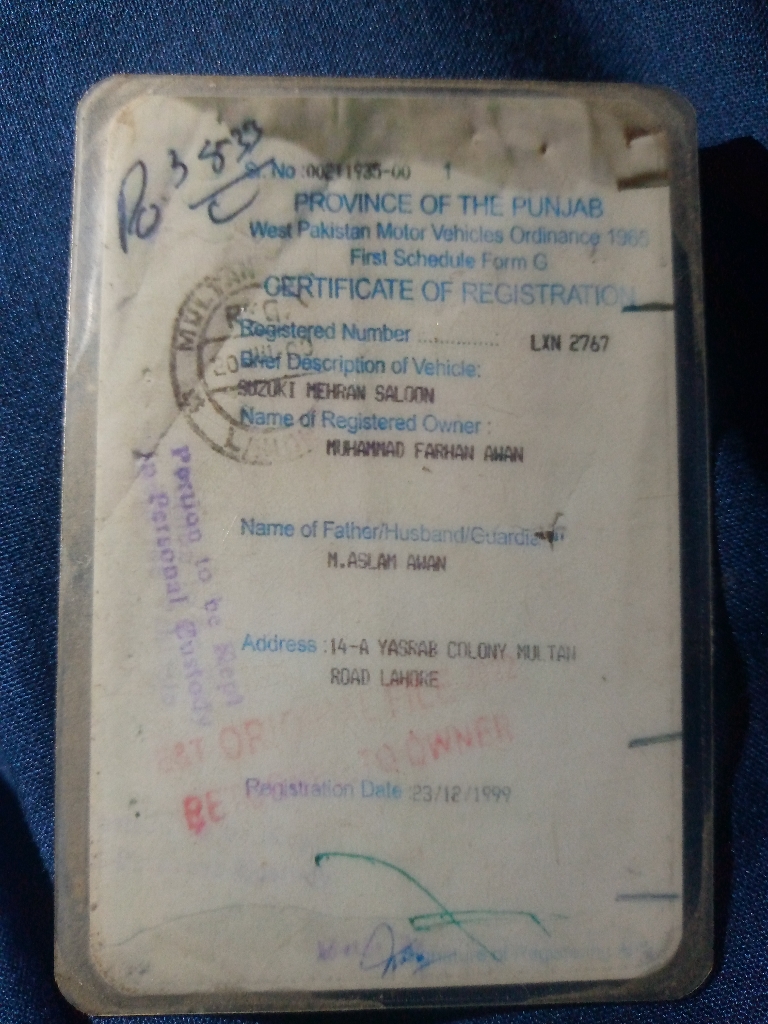 Sr. No :00211935-00 1
PROVINCE OF THE PUNJAB
West Pakistan Motor Vehicles Ordinance 1965
First Schedule Form G
CERTIFICATE OF REGISTRATION
Registered Number .............. LXN 2767
Brief Description of Vehicle:
SUZUKI MEHRAN SALOON
Name of Registered Owner :
MUHAMMAD FARHAN AWAN
Name of Father/Husband/Guardian
M.ASLAM AWAN
Address :14-A YASRAB COLONY MULTAN
ROAD LAHORE
Registration Date :23/12/1999
Signature of Registering
Portion to be Kept
in Personal Custody
MULTAN
TO OWNER